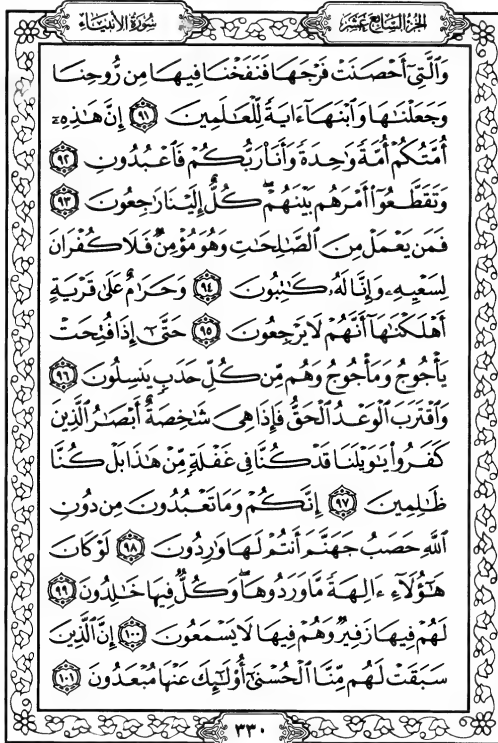 سُورَةُ الأَنبيَاء
الجُزْءُ السَّابِعَ عَشَرَ
وَالَّتِي أَحْصَنَتْ فَرْجَهَا فَنَفَخْنَا فِيهَا مِن رُّوحِنَا
وَجَعَلْنَٰهَا وَٱبْنَهَآ ءَايَةً لِّلْعَٰلَمِينَ ٩١ إِنَّ هَٰذِهِۦٓ
أُمَّتُكُمْ أُمَّةً وَٰحِدَةً وَأَنَا۠ رَبُّكُمْ فَٱعْبُدُونِ ٩٢
وَتَقَطَّعُوٓا۟ أَمْرَهُم بَيْنَهُمْ ۖ كُلٌّ إِلَيْنَا رَٰجِعُونَ ٩٣
فَمَن يَعْمَلْ مِنَ ٱلصَّٰلِحَٰتِ وَهُوَ مُؤْمِنٌ فَلَا كُفْرَانَ
لِسَعْيِهِۦ وَإِنَّا لَهُۥ كَٰتِبُونَ ٩٤ وَحَرَٰمٌ عَلَىٰ قَرْيَةٍ
أَهْلَكْنَٰهَآ أَنَّهُمْ لَا يَرْجِعُونَ ٩٥ حَتَّىٰٓ إِذَا فُتِحَتْ
يَأْجُوجُ وَمَأْجُوجُ وَهُم مِّن كُلِّ حَدَبٍ يَنسِلُونَ ٩٦
وَٱقْتَرَبَ ٱلْوَعْدُ ٱلْحَقُّ فَإِذَا هِىَ شَٰخِصَةٌ أَبْصَٰرُ ٱلَّذِينَ
كَفَرُوا۟ يَٰوَيْلَنَا قَدْ كُنَّا فِى غَفْلَةٍ مِّنْ هَٰذَا بَلْ كُنَّا
ظَٰلِمِينَ ٩٧ إِنَّكُمْ وَمَا تَعْبُدُونَ مِن دُونِ
ٱللَّهِ حَصَبُ جَهَنَّمَ أَنتُمْ لَهَا وَٰرِدُونَ ٩٨ لَوْ كَانَ
هَٰٓؤُلَآءِ ءَالِهَةً مَّا وَرَدُوهَا ۖ وَكُلٌّ فِيهَا خَٰلِدُونَ ٩٩
لَهُمْ فِيهَا زَفِيرٌ وَهُمْ فِيهَا لَا يَسْمَعُونَ ١٠٠ إِنَّ ٱلَّذِينَ
سَبَقَتْ لَهُم مِّنَّا ٱلْحُسْنَىٰٓ أُو۟لَٰٓئِكَ عَنْهَا مُبْعَدُونَ ١٠١
٣٣٠